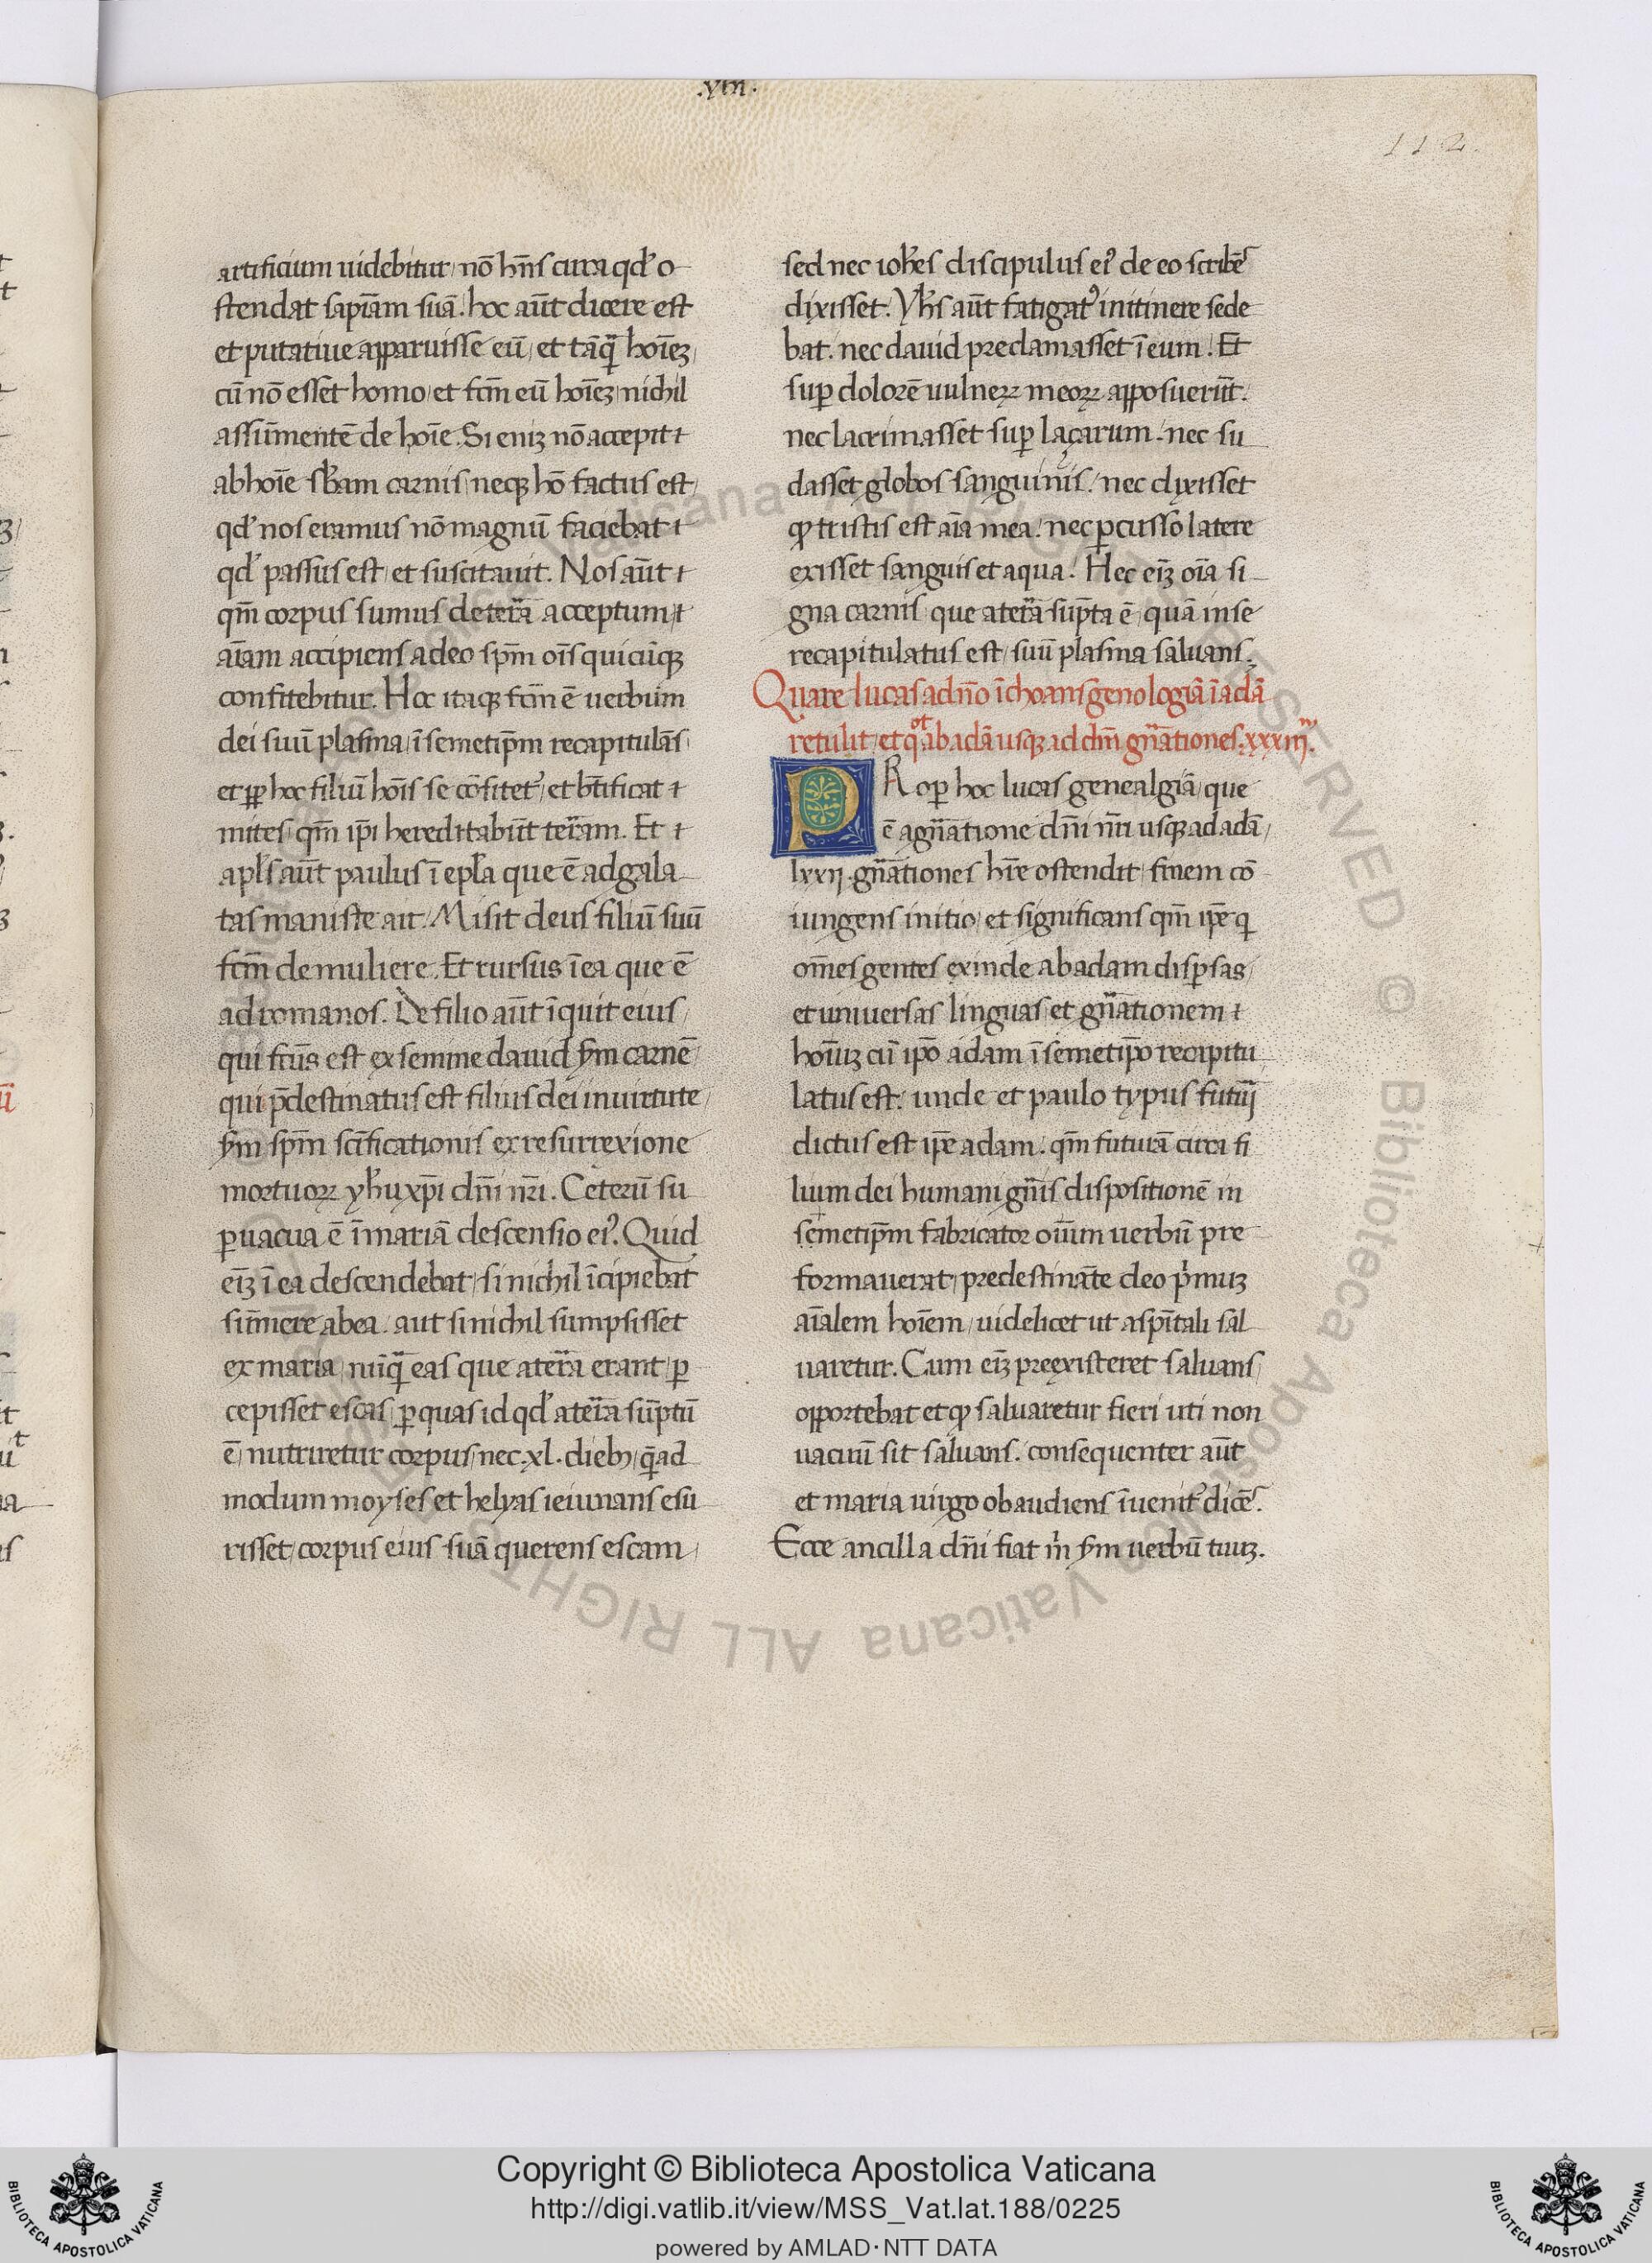 .xiii.
112.
artificium uidebitur, nō hn̄s cura qd' o-
stendat sapiām suā. hoc aūt dicere est
et putatiue apparuisse eū, et tāq̄ hoīez,
cū nō esset homo, et fcm̄ eū hoīez, nichil
assūmentē de hoīe. Si eniz nō accepit
ab hoīe sb'am carnis, neqꝫ hō factus est,
qd' nos eramus nō magnū faciebat
qd' passus est, et suscitauit. Nos aūt
qm̄ corpus sumus de terrā acceptum,
aīam accipiens a deo spm̄ oīs quicūqꝫ
confitebitur. Hoc itaqꝫ fcm̄ ē uerbum
dei suū plasma, ī semetip̄m recapitulās
et ꝓp hoc filiū hoīs se cōfitet', et bt̄ificat
mites, qm̄ ip̄i hereditabūt terram. Et
apl's aūt paulus ī epl'a que ē ad gala-
tas maniste ait. Misit deus filiū suū
fcm̄ de muliere. Et rursus ī ea que ē
ad romanos. De filio aūt īquit eius,
qui fcūs est ex semine dauid sm̄ carnē,
qui p̄destinatus est filius dei in uirtute,
sm̄ spm̄ scīficationis ex resurrexione
mortuoꝝ yh'u xp̄i dn̄i nr̄i. Ceterū su
ꝑuacua ē ī mariā descensio ei'. Quid
eīz ī ea descendebat, si nichil īcipiebat
sūmere ab ea. aut si nichil sumpsisset
ex maria, nūq̄ eas que a terra erant, ꝑ
cepisset escas, ꝑ quas id qd' a terra sūptū
ē, nutriretur corpus, nec .xl. dieb; q̄ad
modum moyses et helyas ieiunans esu
risset, corpus eius suā querens escam,
sed nec ioh'es discipulus ei' de eo scribēs
dixisset. Yh's aūt fatigat' in itinere sede
bat. nec dauid preclamasset ī eum. Et
suꝑ dolorē uulneꝝ meoꝝ apposuerūt.
nec lacrimasset suꝑ laçarum. nec su
dasset globos sanguinis. nec dixisset
ꝙ tristis est aīa mea. nec ꝑcusso latere
exisset sanguis et aqua. Hec eīz oīa si-
gna carnis que a terra sūpta ē, quā in se
recapitulatus est, suū plasma saluans.
Quare lucas a dn̄o īchoans genologiā ī adā
retulit, et qot ab adā usqꝫ ad dm̄ gn̄ationes .xxxiij.
PRoꝑ hoc lucas genealgiā, que
ē a gn̄atione dn̄i nr̄i usqꝫ ad adā,
lxxij. gn̄ationes hr̄e ostendit, finem cō-
iungens initio, et significans qm̄ ip̄e q
om̄es gentes exinde ab adam disꝑsas,
et uniuersas linguas, et gn̄ationem
hoīuz cū ip̄o adam ī semetip̄o recapitu
latus est. unde et paulo typus futuri
dictus est ip̄e adam. qm̄ futurā circa fi
lium dei humani gn̄is dispositionē in
semetip̄m fabricator oīum uerbū pre
formauerat, predestināte deo p'muz
aīalem hoīem, uidelicet ut a spīt̄ali sal
uaretur. Cum eīz preexisteret saluans,
opportebat et ꝙ saluaretur fieri uti non
uacuū sit saluans. consequenter aūt
et maria uirgo obaudiens īuenit' dicēs.
Ecce ancilla dn̄i fiat m' sm̄ uerbū tuuz.
Copyright © Biblioteca Apostolica Vaticana
http://digi.vatlib.it/view/MSS_Vat.lat.188/0225
powered by AMLAD·NTT DATA